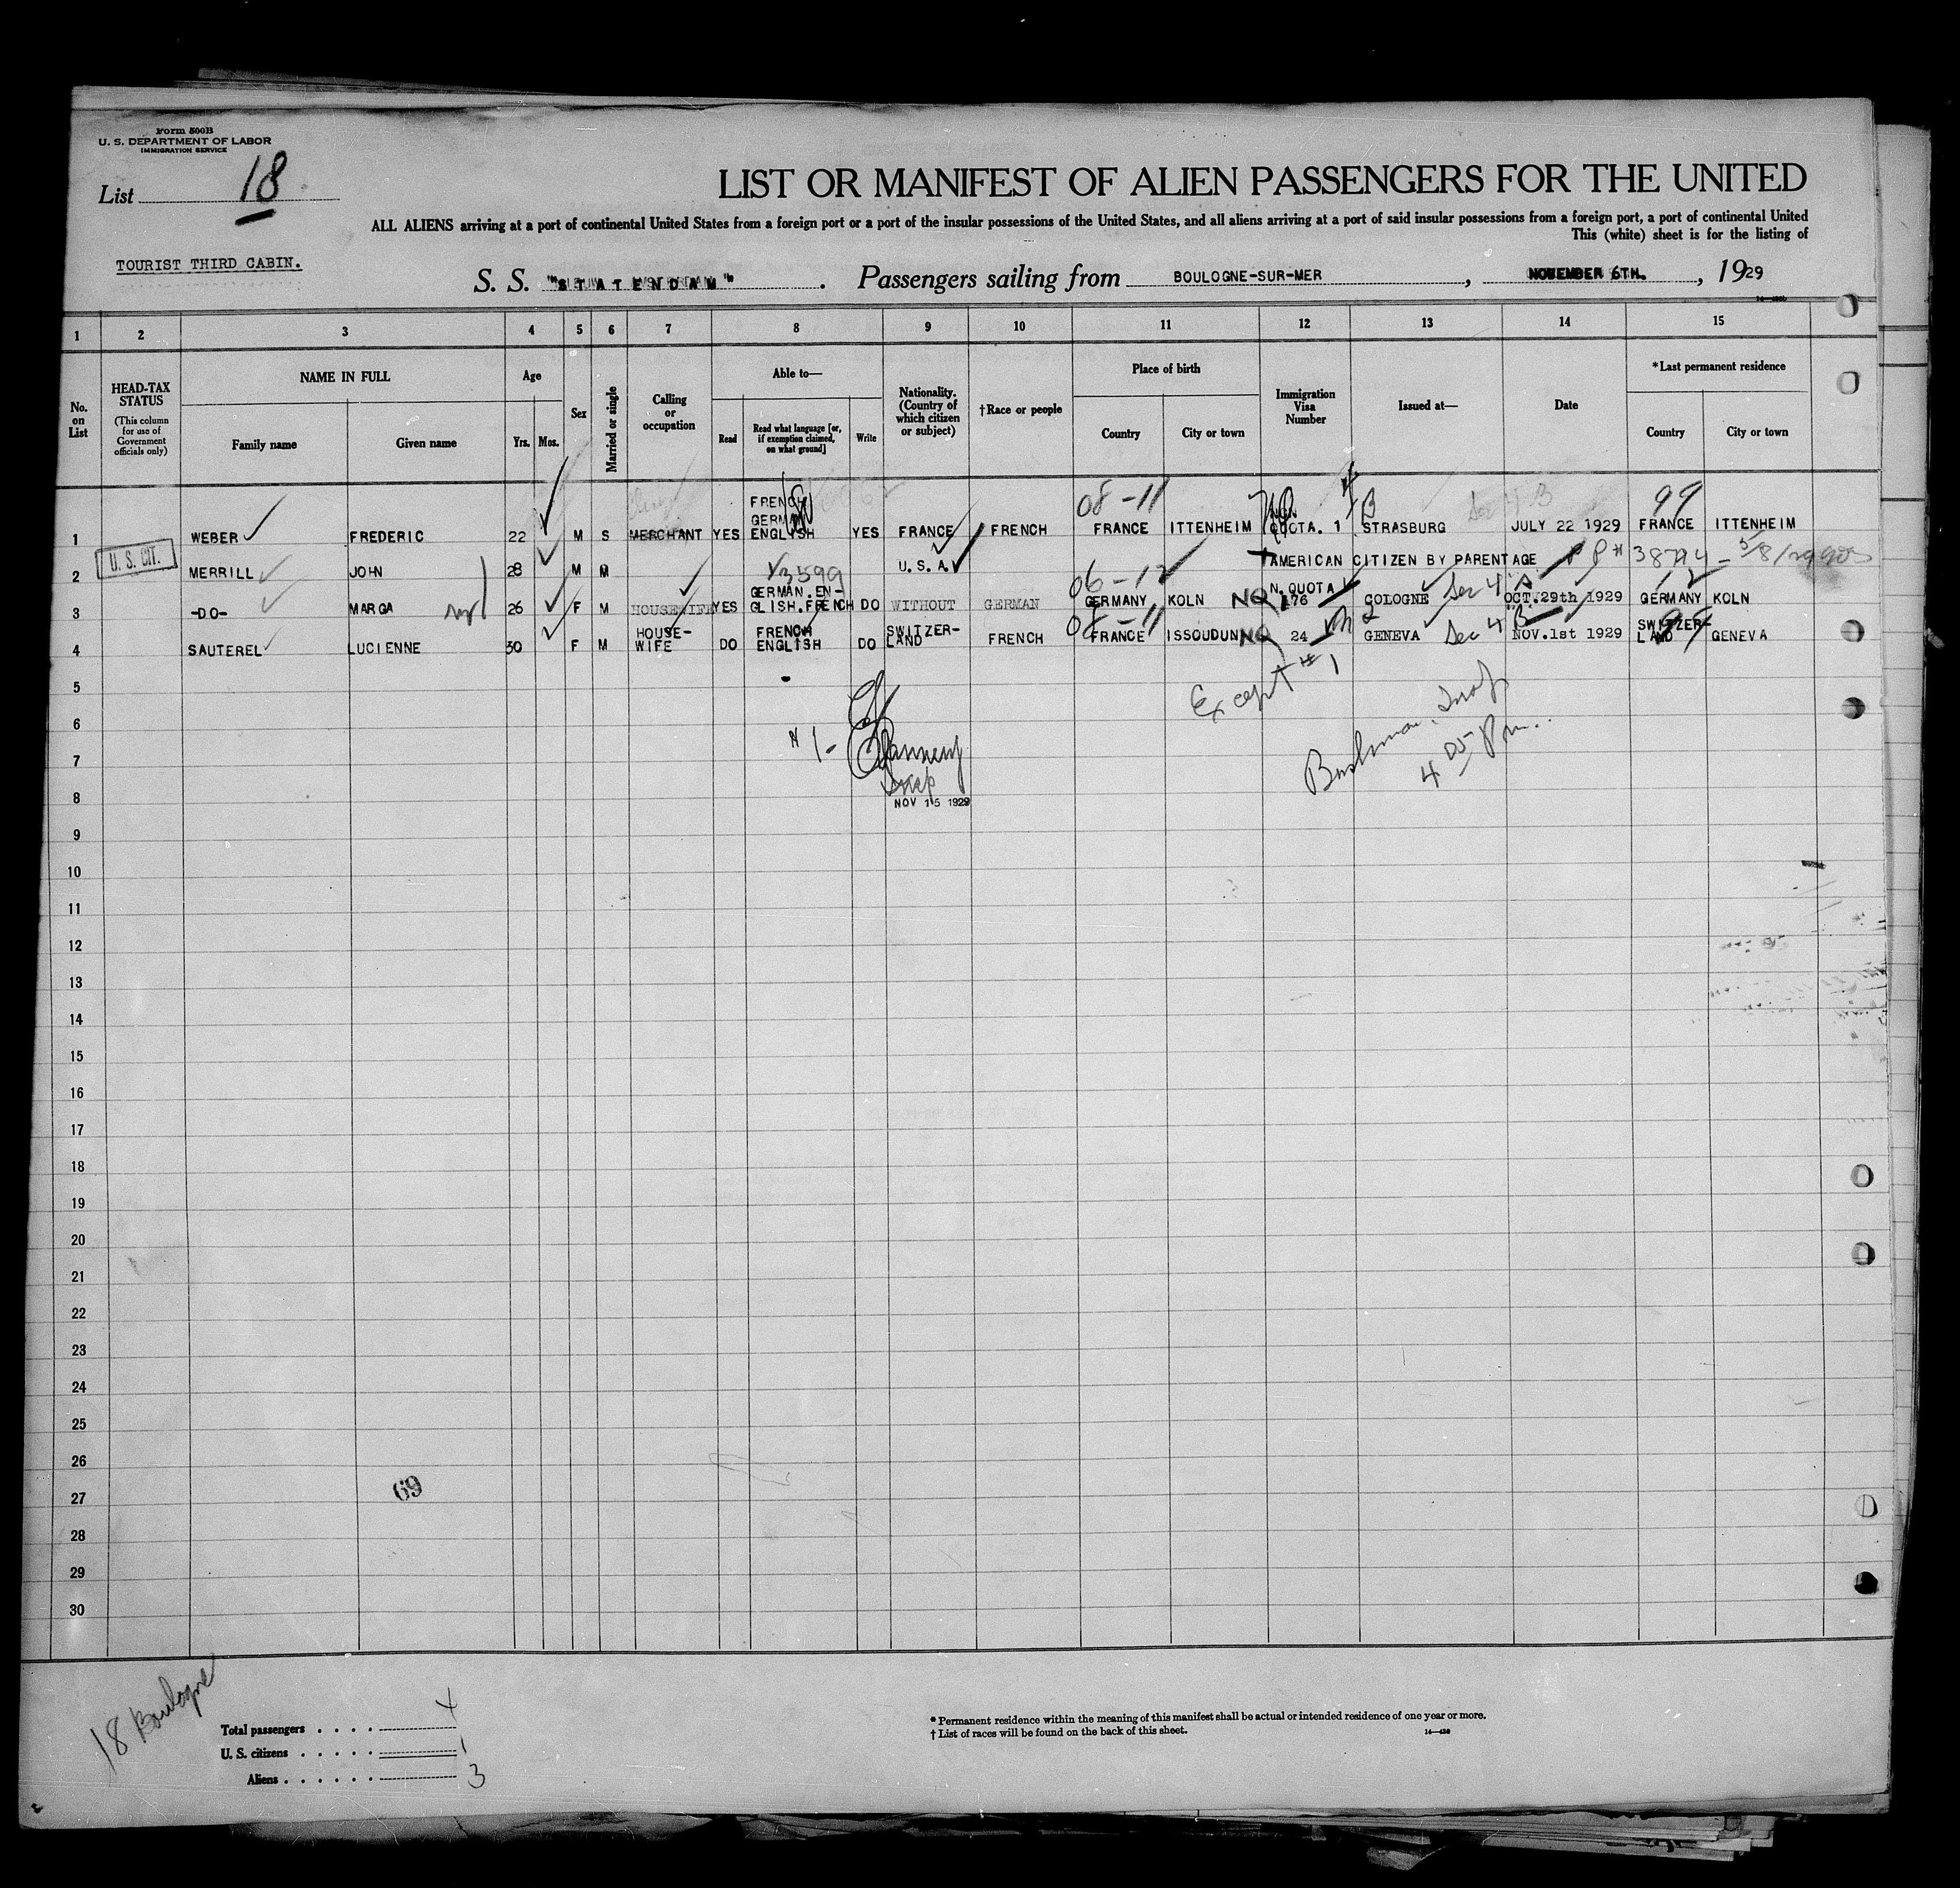 Form 500B
U. S. DEPARTMENT OF LABOR
IMMIGRATION SERVICE
List 18
LIST OR MANIFEST OF ALIEN PASSENGERS FOR THE UNITED
ALL ALIENS arriving at a port of continental United States from a foreign port or a port of the insular possessions of the United States, and all aliens arriving at a port of said insular possessions from a foreign port, a port of continental United
This (white) sheet is for the listing of
TOURIST THIRD CABIN.
S. S. "STATENDAM". Passengers sailing from BOULOGNE-SUR-MER, NOVEMBER 6TH., 1929
1 2 3 4 5 6 7 8 9 10 11 12 13 14 15
No. on List
HEAD-TAX STATUS
(This column for use of Government officials only)
NAME IN FULL
Family name Given name
Age
Yrs. Mos.
Sex
Married or single
Calling or occupation
Able to—
Read
Read what language [or, if exemption claimed, on what ground]
Write
Nationality. (Country of which citizen or subject)
†Race or people
Place of birth
Country City or town
Immigration Visa Number
Issued at—
Date
*Last permanent residence
Country City or town
08-11 99
1 WEBER FREDERIC 22 M S MERCHANT YES FRENCH GERMAN ENGLYSH YES FRANCE FRENCH FRANCE ITTENHEIM NON QUOTA. 1 STRASBURG JULY 22 1929 FRANCE ITTENHEIM
U. S. CIT.
2 MERRILL JOHN 28 M M U.S.A. AMERICAN CITIZEN BY PARENTAGE
06-12
3 -DO- MARGA 26 F M HOUSEWIFE YES GERMAN.EN-GLISH.FRENCH DO WITHOUT GERMAN GERMANY KOLN NQ N.QUOTA 176 COLOGNE Sec 4 A OCT.29th 1929 GERMANY KOLN
08-11
4 SAUTEREL LUCIENNE 30 F M HOUSE-WIFE DO FRENCH ENGLISH DO SWITZER-LAND FRENCH FRANCE ISSOUDUN NQ 24 GENEVA Sec 4 B NOV.1st 1929 SWITZER-LAND 99 GENEVA
5
Except #1
6
7
#1-
8
Insp
NOV 15 1929
9
10
11
12
13
14
15
16
17
18
19
20
21
22
23
24
25
26
27
69
28
29
30
18 Boulogne
Total passengers . . . . 4
U. S. citizens . . . . . 1
Aliens . . . . . . 3
* Permanent residence within the meaning of this manifest shall be actual or intended residence of one year or more.
† List of races will be found on the back of this sheet.